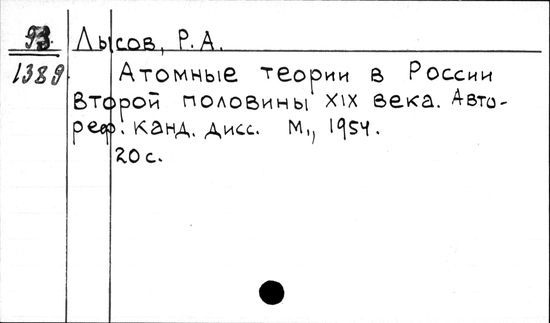 93 Лысов, Р.А.
1389. Атомные теории в России
второй половины XIX века. Авто-
реф. канд. дисс. М., 1954.
20 с.